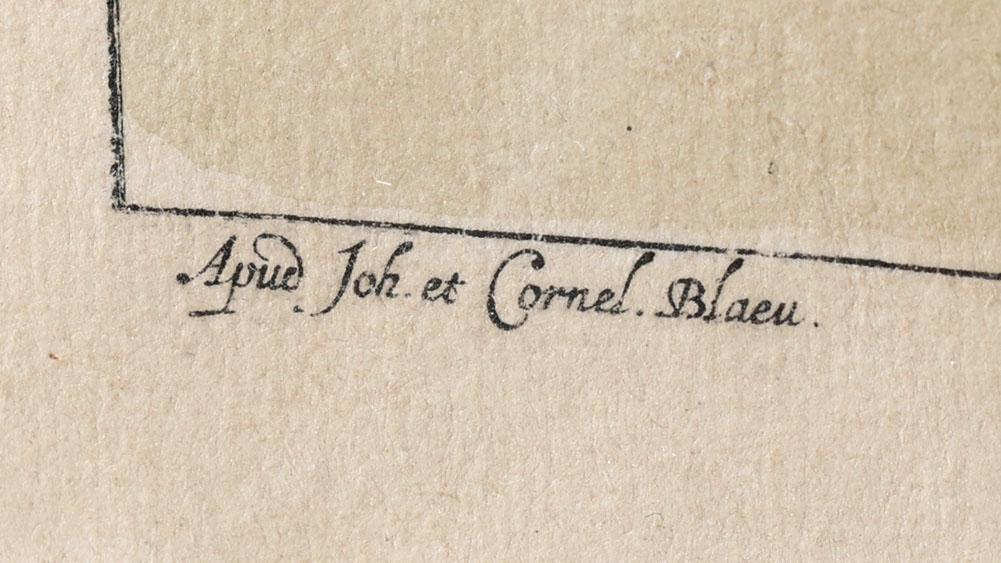 Apud Joh. et Cornel. Blaeu.